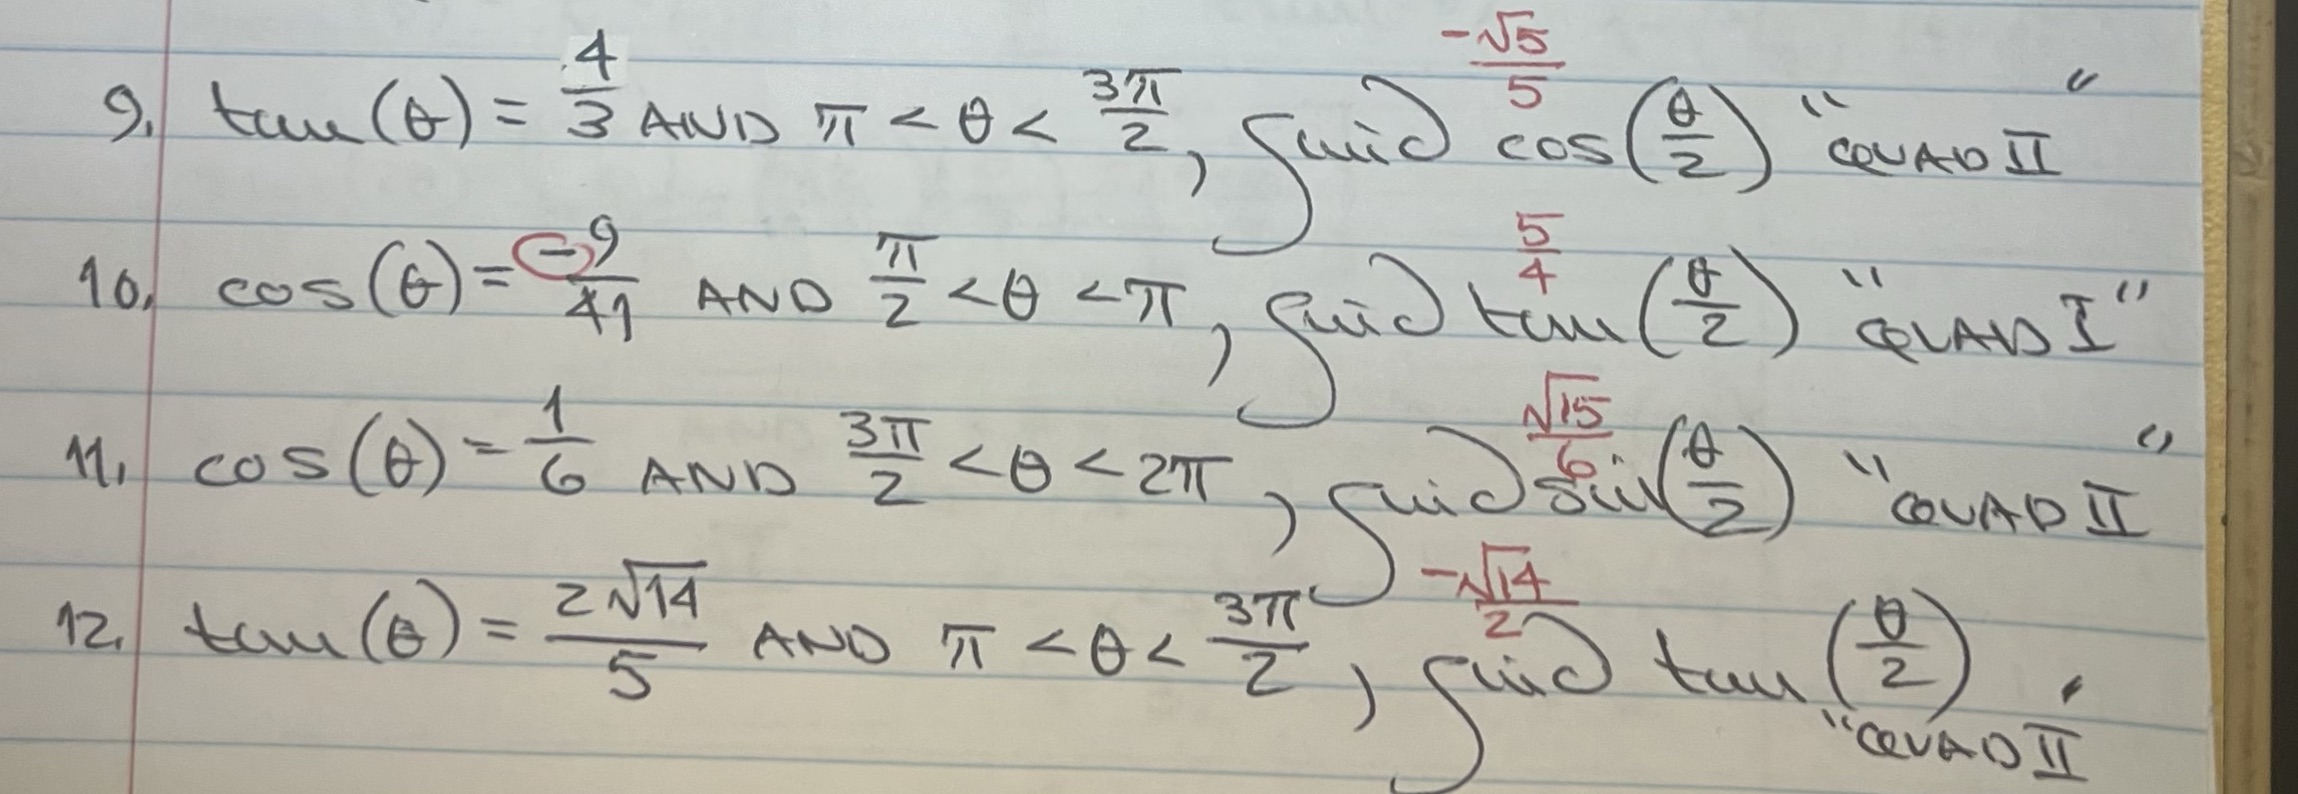 9. tan(θ) = 4/3 AND π < θ < 3π/2, find cos(θ/2) "QUAD II" -√5/5
10. cos(θ) = -9/41 AND π/2 < θ < π, find tan(θ/2) "QUAD I" 5/4
11. cos(θ) = 1/6 AND 3π/2 < θ < 2π, find sin(θ/2) "QUAD II" √15/6
12. tan(θ) = 2√14/5 AND π < θ < 3π/2, find tan(θ/2) "QUAD II" -√14/2